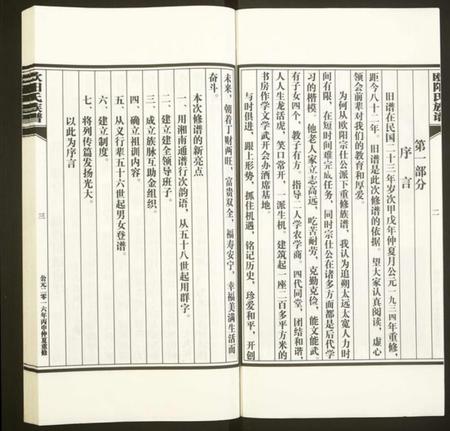 欧阳氏族谱
二
第一部分
序言
旧谱在民国二十三年岁次甲戌年仲夏月公元一九三四年重修,
距今八十二年,旧谱是此次修谱的依据。望大家认真阅读,虚心
领会前辈对我们的教育和厚爱。
为何从欧阳宗仕公派下重修族谱,我认为追朔太远太宽人力时
间有限,在短时间难完成任务,同时宗仕公在诸多方面都是后代学
习的楷模。他老人家立志高远,吃苦耐劳,克勤克俭,能文能武,
有子女四个,教子有方,指导二人学农学商,四代同堂,团结和谐,
人人生龙活虎,笑口常开,一派生机。建筑起一座二百多平方米的
书房作学文学武开会办酒席基地。
与时俱进,跟上形势,抓住机遇,铭记历史,珍爱和平,开创
未来,朝着丁财两旺,富贵双全,福寿安宁,幸福美满生活而
奋斗。
本次修谱的新亮点
一、用湘南通谱行次韵语,从五十八世起用群字。
二、建立建全领导班子。
三、成立族脉互助金组织。
四、确立祖训内容。
五、从义行辈五十六世起男女登谱。
六、建立制度。
七、将列传篇发扬光大。
以此为序言
欧阳氏族谱
三
公元二零一六年丙申仲夏重修